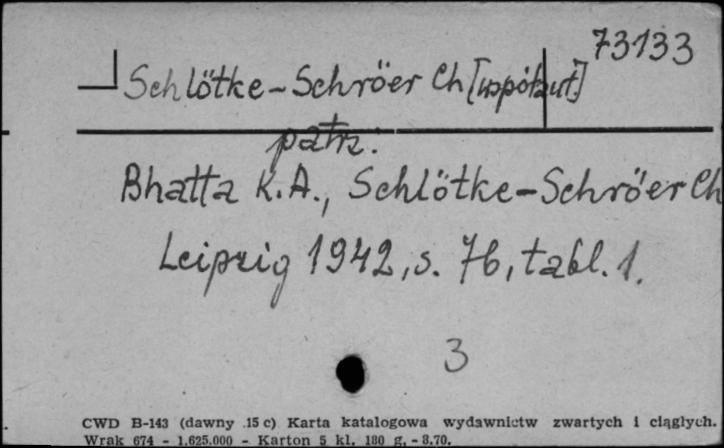 73133
Schlötke-Schröer Ch [współaut]
patrz:
Bhatta K.A., Schlötke-Schröer Ch
Leipzig 1942, s. 76, tabl. 1.
3
CWD B-143 (dawny 15 c) Karta katalogowa wydawnictw zwartych i ciągłych.
Wrak 674 - 1.625.000 - Karton 5 kl. 180 g. - 3.70.